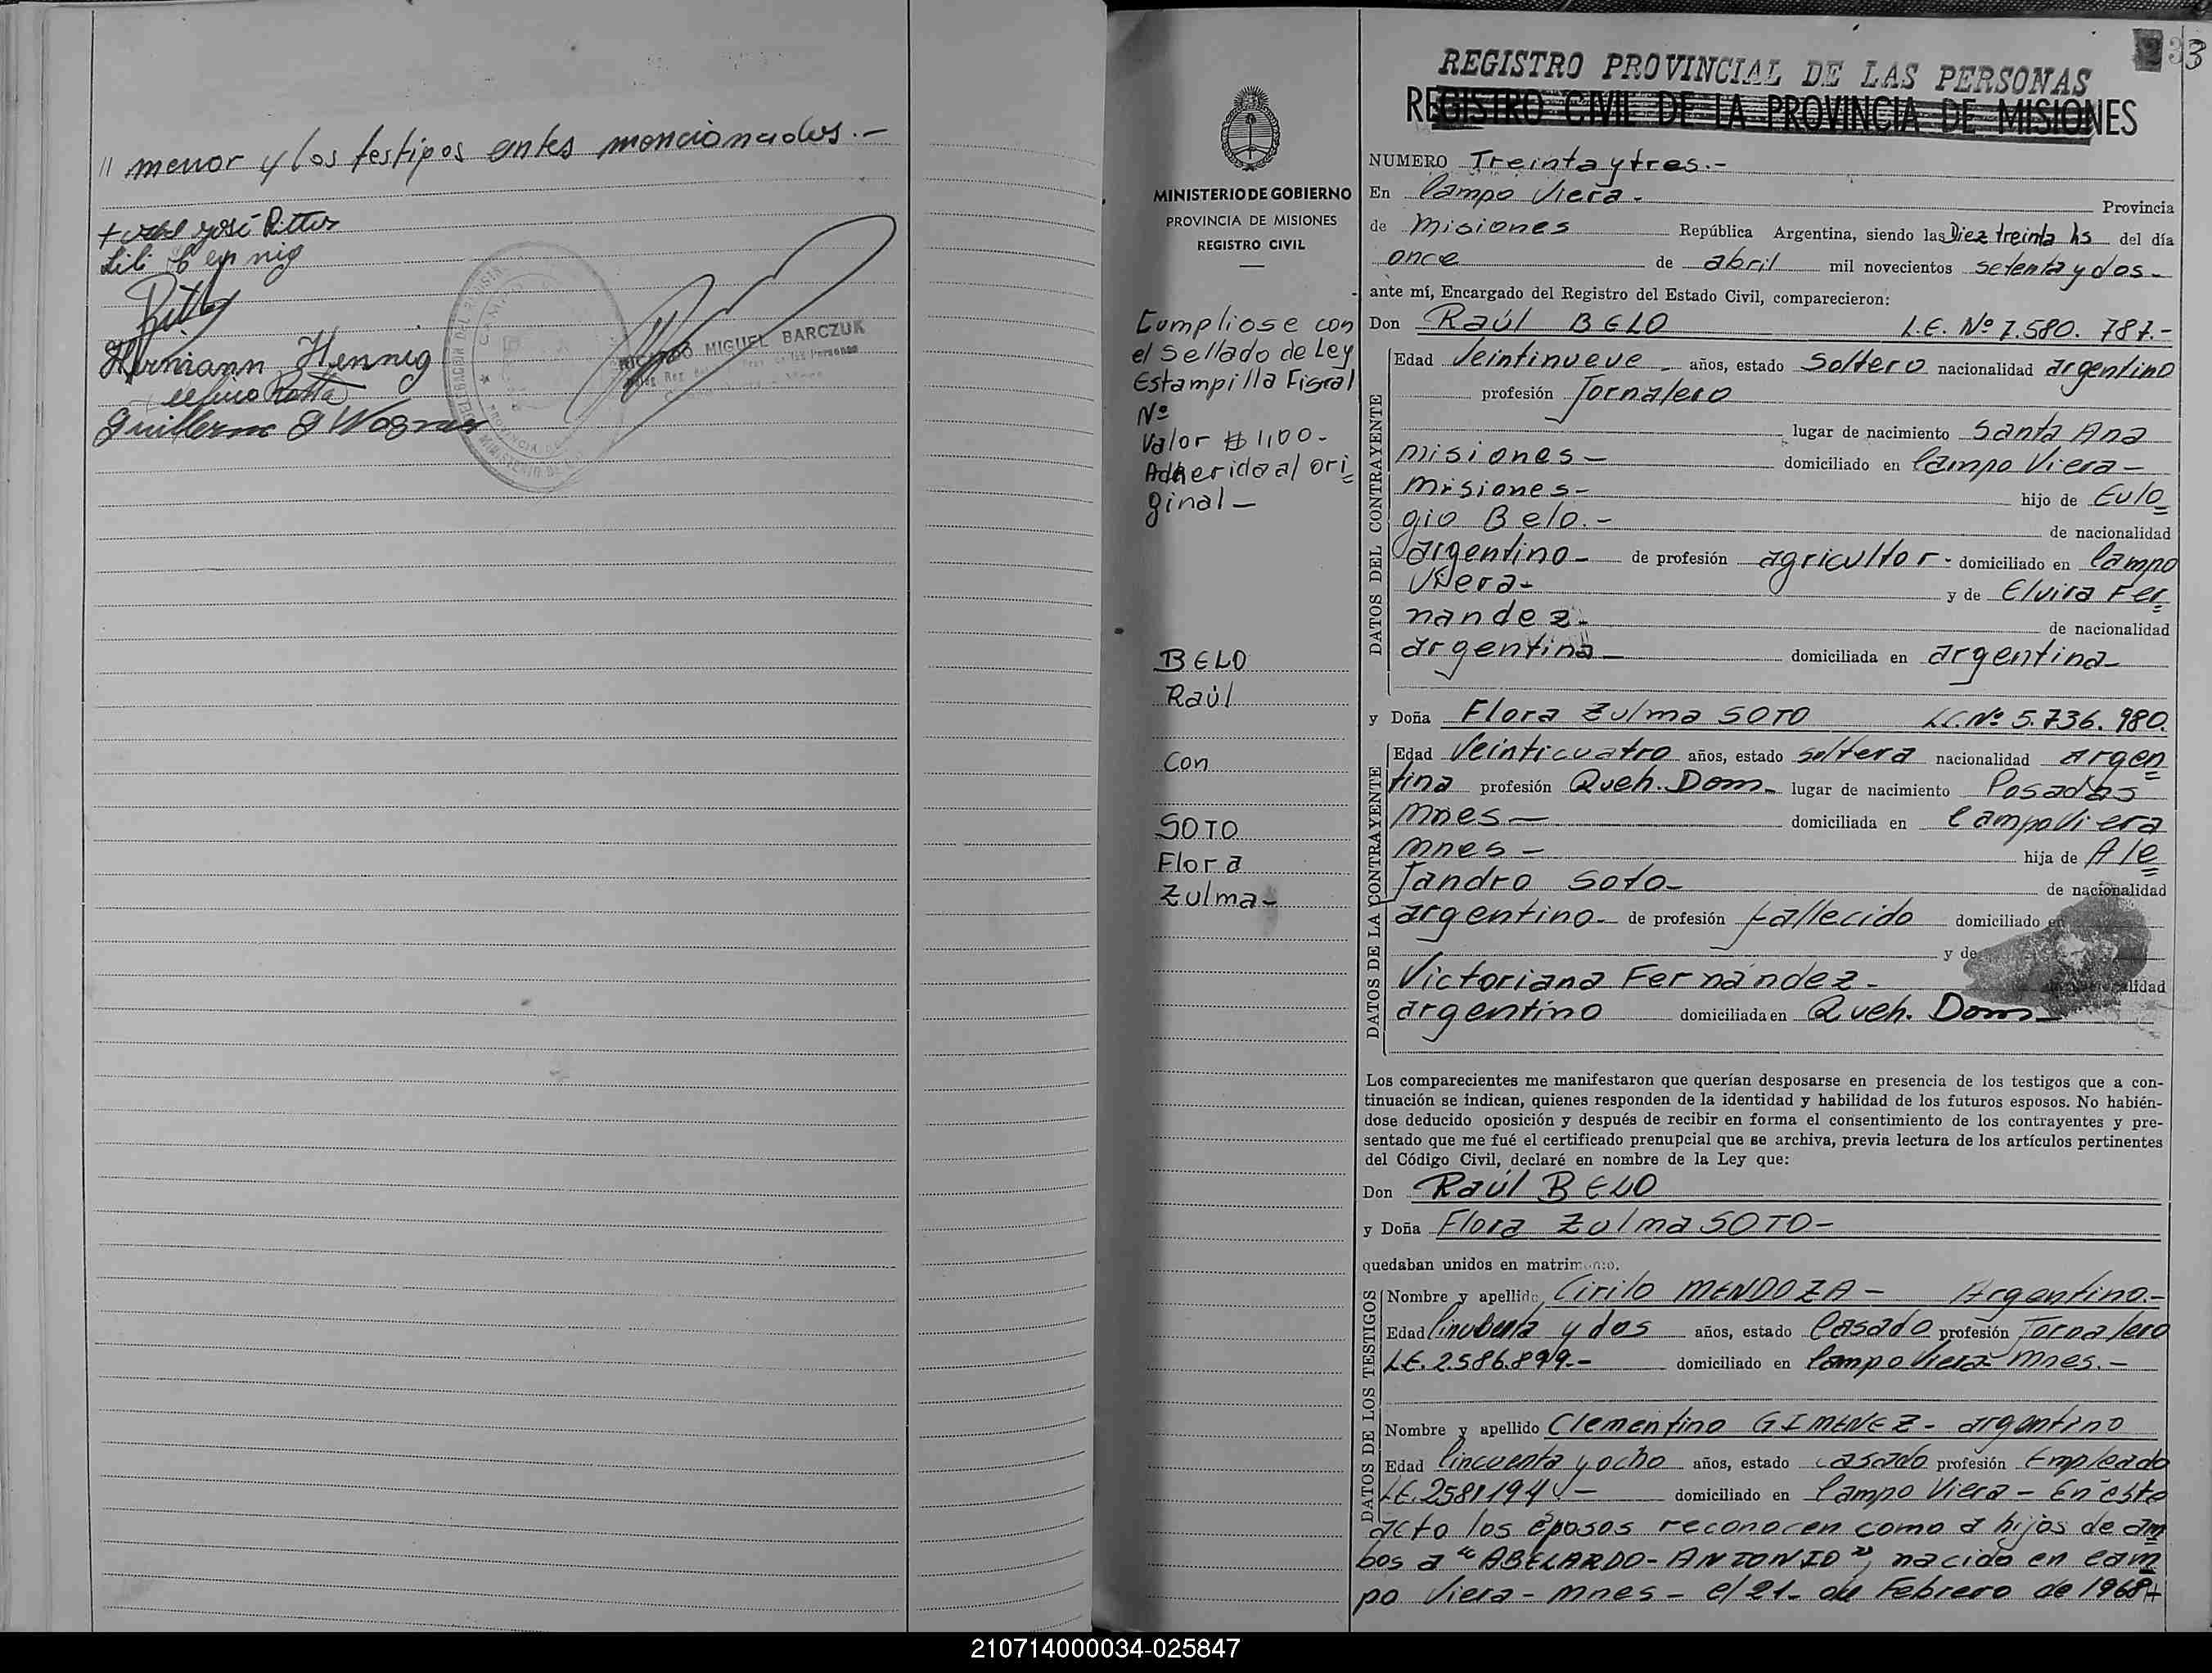 // menor y los testigos antes mencionados.-
José Ritter
Lili Hennig
Hermann Hennig
Guillermo Wagner
RICARDO MIGUEL BARCZUK
33
REGISTRO PROVINCIAL DE LAS PERSONAS
REGISTRO CIVIL DE LA PROVINCIA DE MISIONES
MINISTERIO DE GOBIERNO
PROVINCIA DE MISIONES
REGISTRO CIVIL
Cumpliose con
el Sellado de Ley
Estampilla Fiscal
Nº
Valor $ 1,00-
Adherida al ori=
ginal-
BELO
Raúl
Con
SOTO
Flora
Zulma-
NUMERO Treinta y tres.-
En Campo Viera- Provincia
de Misiones República Argentina, siendo las Diez treinta hs del día
once de abril mil novecientos setenta y dos-
ante mí, Encargado del Registro del Estado Civil, comparecieron:
Don Raúl BELO L.E. Nº 7.580.787.-
DATOS DEL CONTRAYENTE
Edad Veintinueve - años, estado Soltero nacionalidad argentino
profesión Jornalero
lugar de nacimiento Santa Ana
Misiones- domiciliado en Campo Viera-
Misiones- hijo de Eulo=
gio Belo.- de nacionalidad
argentino- de profesión agricultor- domiciliado en Campo
Viera- y de Elvira Fer=
nandez- de nacionalidad
argentina- domiciliada en argentina-
y Doña Flora Zulma SOTO L.C. Nº 5.736.980.
DATOS DE LA CONTRAYENTE
Edad Veinticuatro años, estado soltera nacionalidad argen=
tina profesión Queh. Dom- lugar de nacimiento Posadas
Mnes- domiciliada en Campo Viera
Mnes- hija de Ale=
jandro Soto- de nacionalidad
argentino- de profesión fallecido domiciliado en
y de
Victoriana Fernández-
argentino domiciliada en Queh. Dom-
Los comparecientes me manifestaron que querían desposarse en presencia de los testigos que a con-
tinuación se indican, quienes responden de la identidad y habilidad de los futuros esposos. No habién-
dose deducido oposición y después de recibir en forma el consentimiento de los contrayentes y pre-
sentado que me fué el certificado prenupcial que se archiva, previa lectura de los artículos pertinentes
del Código Civil, declaré en nombre de la Ley que:
Don Raúl BELO
y Doña Flora Zulma SOTO-
quedaban unidos en matrimonio.
DATOS DE LOS TESTIGOS
Nombre y apellido Cirilo MENDOZA - Argentino.-
Edad Cincuenta y dos años, estado Casado profesión Jornalero
L.E. 2.586.899.- domiciliado en Campo Viera Mnes.-
Nombre y apellido Clementino GIMENEZ- argentino
Edad Cincuenta y ocho años, estado casado profesión Empleado
L.E. 2581194.- domiciliado en Campo Viera - En este
acto los eposos reconocen como a hijos de am=
bos a "ABELARDO-ANTONIO", nacido en Cam=
po Viera - Mnes - el 21- de Febrero de 1968
210714000034-025847